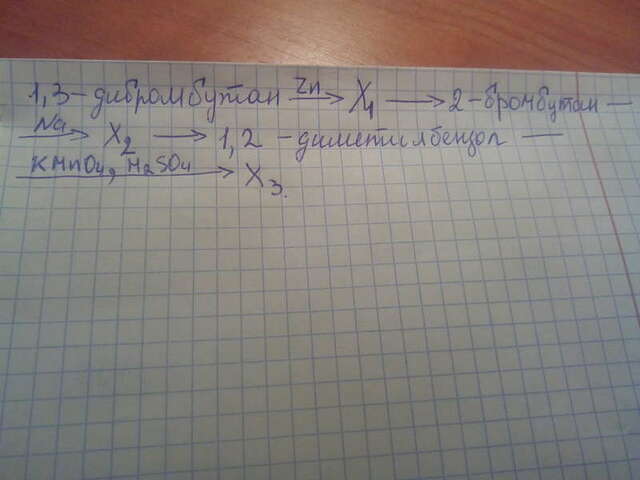 1,3-дибромбутан Zn→ X1 → 2-бромбутан —
Na→ X2 → 1,2 - диметилбензол —
KMnO4, H2SO4→ X3.